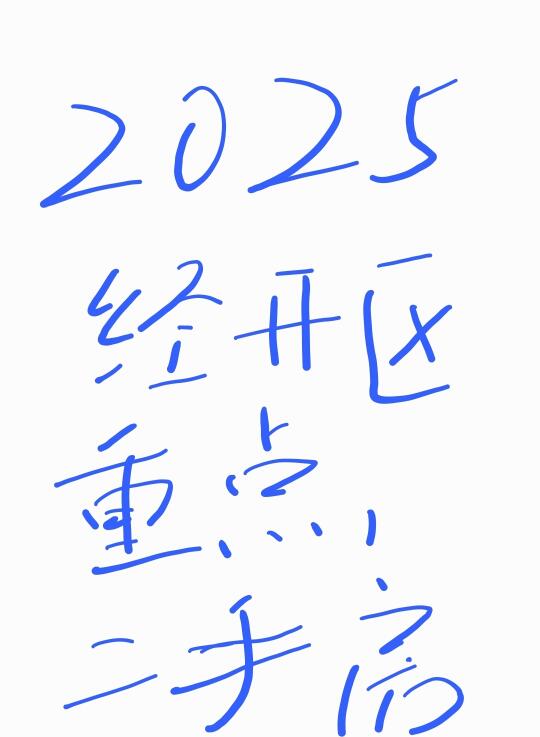 2025
经开区
重点!
二手房